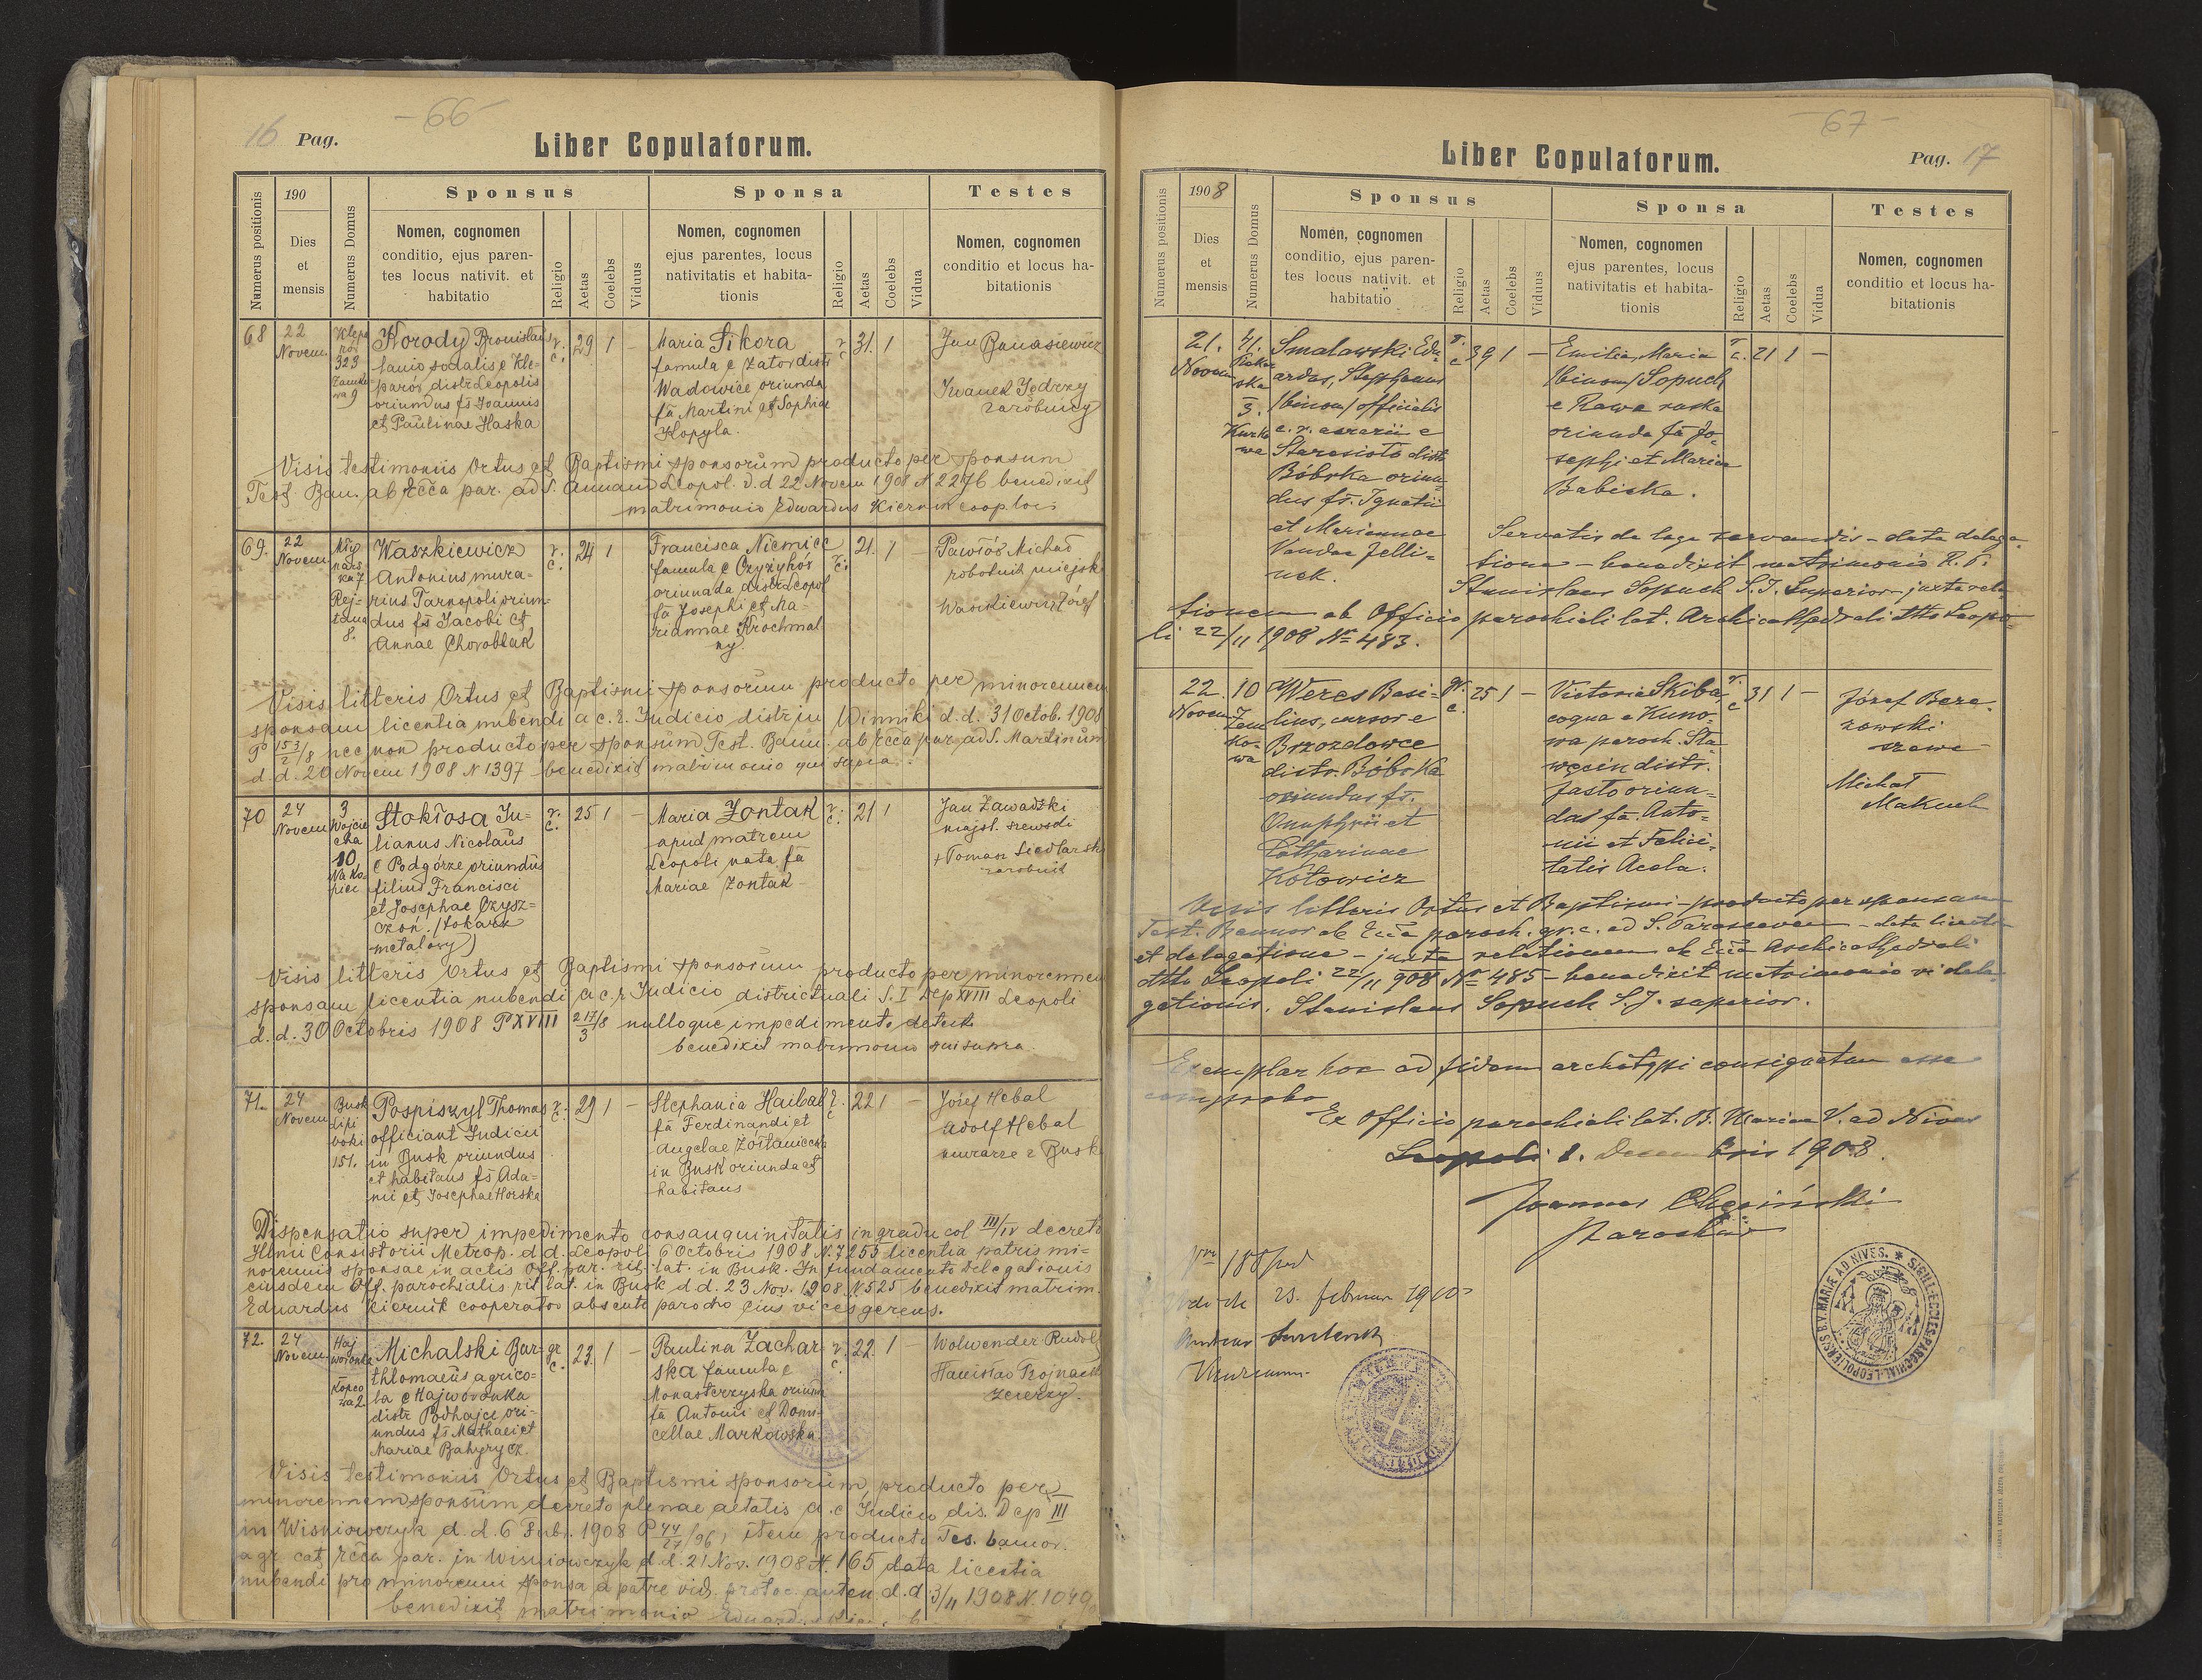 16 Pag.
-66-
Liber Copulatorum.
Numerus positionis
190
Dies
et
mensis
Numerus Domus
Sponsus
Nomen, cognomen
conditio, ejus paren-
tes locus nativit. et
habitatio
Religio
Aetas
Coelebs
Viduus
Sponsa
Nomen, cognomen
ejus parentes, locus
nativitatis et habita-
tionis
Religio
Aetas
Coelebs
Vidua
Testes
Nomen, cognomen
conditio et locus ha-
bitationis
68
22
Novem.
Klepa
rów
323
Zamko
wa 9
Korody Bronislaus
lanio sodalis e Kle-
parów distr Leopolis
oriundus fs Joannis
et Paulinae Haska
r.
c.
29
1
-
Maria Sikora
famula e Zator distr
Wadowice oriunda
fa Martini et Sophiae
Kopyla.
r.
c.
31.
1
Jan Banasiewicz
Iwanek Jędrzy
zarobnicy
Visis testimoniis Ortus et Baptismi sponsorum producto per sponsum
Test. Bau. ab Ecca par. ad S. Annam Leopol. d. d 22 Novem 1908 N 2276 benedixit
matrimonio Edwardus Kiernik cooptor
69.
22
Novem.
Waszkiewicz
Antonius mura-
rius Tarnopoli oriun-
dus fs Jacobi et
Annae Chorobłak
Rej-
tana
8.
r.
c.
24
1
Francisca Niemiec
famula e Czyżyków
oriunada distr Leopol
fa Josephi et Ma-
riannae Krochmal
ny.
r.
c.
21.
1
-
Pawłoś Michał
robotnik miejski
Waszkiewicz Józef
Visis litteris Ortus et Baptismi sponsorum producto per minorennem
sponsam licentia nubendi a c. r. Judicio distr ju Winniki d. d. 31 Octob. 1908
P 153/2/8 nec non producto per sponsum Test. Bann. ab Ecca par ad S. Martinum
d. d. 20 Novem 1908 N 1397 benedixit matrimonio qui supra.
70
24
Novem
3
Wojcie
cha
10
Na Ko-
piec
Stokłosa Ju-
lianus Nicolaus
e Podgórze oriundus
filius Francisci
et Josephae Czysz-
czoń. (tokarz
metalowy)
r.
c.
25
1
-
Maria Zontak
apud matrem
Leopoli nata fa
Mariae Zontak
r.
c.
21
1
Jan Zawadzki
majst. szewski
+ Tomasz Siedlarski
zarobnik
Visis litteris Ortus et Baptismi sponsorum producto per minorennem
sponsam licentia nubendi a c. r Judicio districtuali S. I Dep XVIII Leopoli
d. d. 30 Octobris 1908 P XVIII 217/3/8 nulloque impedimento detecto
benedixit matrimonio qui supra.
71.
24
Novem
Busk
Lipi
boki
151.
Pospiszyl Thomas
officiant Judicii
in Busk oriundus
et habitans fs Ada-
mi et Josephae Horska
r.
c.
29
1
-
Stephania Haibal
fa Ferdinandi et
Angelae Żółtaniecka
in Busk oriunda et
habitans
r.
c
22
1
-
Józef Hebal
Adolf Hebal
murarze z Busk
Dispensatio super impedimento consanguinitatis in gradu col III/IV decreto
Illmi Consistorii Metrop. d. d. Leopoli 6 Octobris 1908 N. 7255 licentia patris mi-
norennis sponsae in actis Off. par. rit. lat. in Busk. In fundamento Delegationis
eiusdem Off. parochialis rit lat. in Busk d d. 23 Nov. 1908 N 525 benedixit matrim.
Eduardus Kiernik cooperator absente parocho eius vices gerens.
72.
24
Novem
Haj
woronka
Kopco
wa 2
Michalski Bar-
thlomaeus agrico-
la e Hajworonka
distr Podhajce ori-
undus fs Mathaei et
Mariae Bahyrycz
gr
c.
23.
1
-
Paulina Zachar-
ska famula e
Monasterzyska oriunda
fa Antonii et Domi-
cellae Markowska
r.
c.
22.
1
-
Wolwender Rudolf
Stanisław Trojnacki
żołnierzy.
Visis testimoniis Ortus et Baptismi sponsorum, producto per
minorennem sponsum decreto plenae aetatis a. c Judicio dis. Dep III
in Wiśniowczyk d. d. 6 Febr. 1908 P 44/27/96, item producto Tes. bannor.
a gr. cat Ecca par. in Wiśniowczyk d. d. 21 Nov. 1908 N. 165 data licentia
nubendi pro minorenni sponsa a patre vid. protoc. autem d. d 3/11 1908 N. 1049
benedixit matrimonio
-67-
Liber Copulatorum.
Pag. 17
Numerus positionis
1908
Dies
et
mensis
Numerus Domus
Sponsus
Nomen, cognomen
conditio, ejus paren-
tes locus nativit. et
habitatio
Religio
Aetas
Coelebs
Viduus
Sponsa
Nomen, cognomen
ejus parentes, locus
nativitatis et habita-
tionis
Religio
Aetas
Coelebs
Vidua
Testes
Nomen, cognomen
conditio et locus ha-
bitationis
21.
Novem
3.
Kurko
wa
Smalawski Edu-
ardus, Stephanus
/binom/ officialis
c. r. aerarii e
Starosioło distr
Bóbrka oriun-
dus fs. Ignatii
et Mariannae
Vandae Jelli-
nek.
r.
c
39
1
-
Emilia, Maria
/binom/ Sopuch
e Rawa ruska
oriunda fa Jo-
sephi et Maria
Babicka.
r.
c.
21
1
-
Servatis de lege servandis - data delega-
tione - benedixit matrimonio R. P.
Stanislaus Sopuch S. J. Superior juxta rela-
tionem ab Officio parochiali lat. Archicathedrali dtto Leopo-
li 22/11 1908 № 483.
22.
Novem
10
Zam
ko-
wa
Weres Basi-
lius, cursor e
Brzozdowce
distr. Bóbrka
oriundus fs.
Onuphrii et
Catharinae
Kotowicz
gr.
c.
25
1
-
Victoria Skiba
coqua e Kuno-
wa paroch. Sła-
węcin distr.
Jasło oriun-
da fa Anto-
nii et Felici-
tatis Acela.
r.
c
31
1
-
Józef Bere-
zowski
szewc
Michał
Makuch
Visis litteris Ortus et Baptismi - producto per sponsam
Test. Bannor ab Ecca paroch. gr. c. ad S. Parasceven - data licentia
et delegatione - juxta relationem ab Ecca Archicathedrali
dtto Leopoli 22/11 908 № 485 - benedixit matrimonio vi dele-
gationis. Stanislaus Sopuch S. J. superior.
Exemplar hoc ad fidem archetypi consignatum esse
comprobo
Ex Officio parochiali lat. B. Mariae V. ad Nives
Leopoli 8. Decembris 1908.
Joannes Chęciński
Parochus
23. februar 1910
SIGILL. ECCLES. PAROCHIAL. LEOPOLIENSIS B. V. MARIÆ AD NIVES.